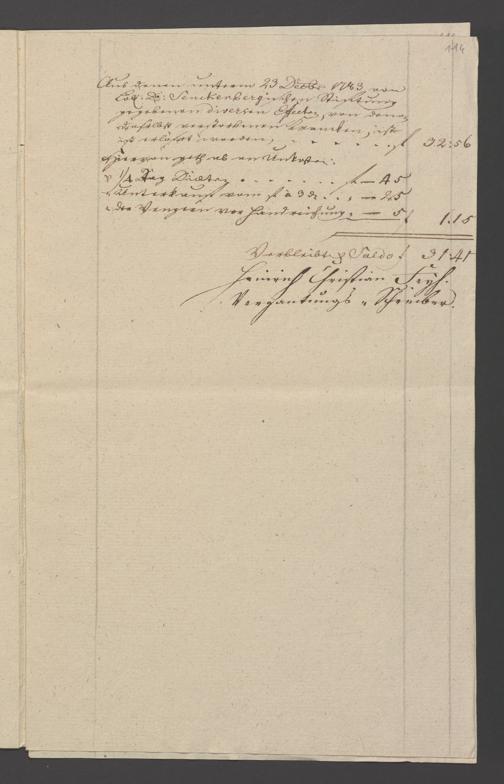 114
Aus denen unterm 23 Decbr 1783, von
Löbl. Dr. Senckenbergischen Stiftung
gegebenen diversen Effecten, von denen
daselbst verstorbenen Krancken, ist
erlößt worden, f 32:56
Hiervon geht ab an Unkosten:
1/4 Tag Diäten f — 45
Unterkauf vom f à 3 — 25
Handreichung — 5 f 1.15
Verbleibt p Saldo f 31:41
Heinrich Christian
Vergantungs-Schreiber.